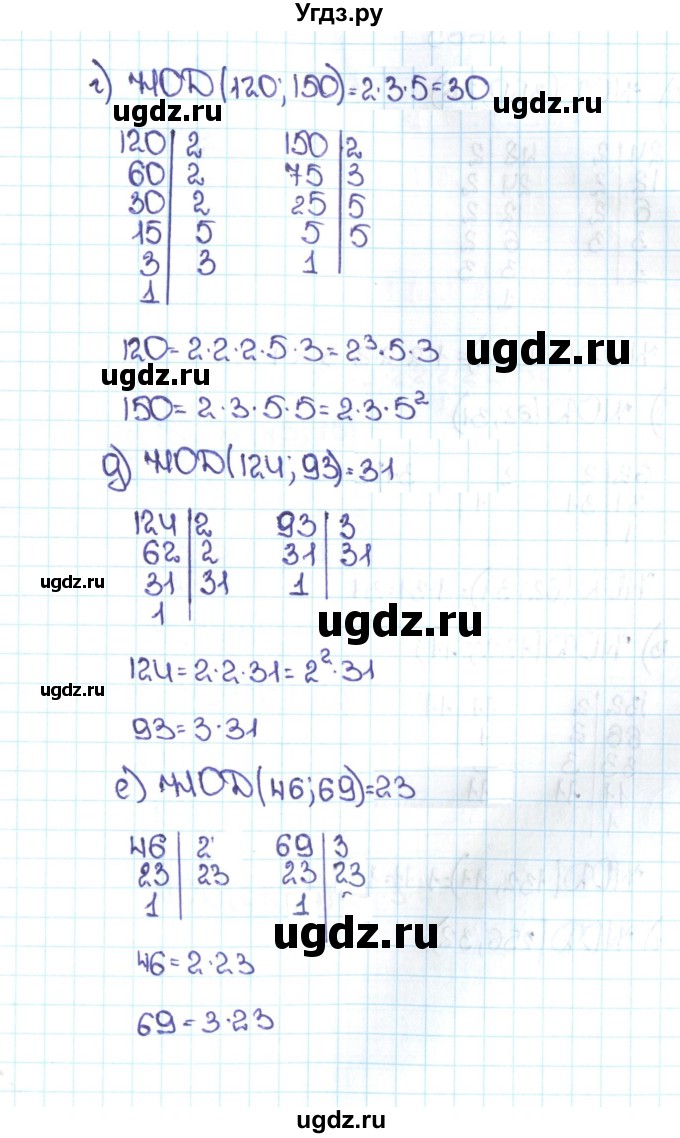 Угдз.ру
г) НОД(120; 150)=2·3·5=30
ugdz.ru
ugdz.ru
120 | 2 150 | 2
60 | 2 75 | 3
30 | 2 25 | 5
15 | 5 5 | 5
3 | 3 1 |
1 |
120=2·2·2·5·3=2³·5·3
ugdz.ru
ugdz.ru
150=2·3·5·5=2·3·5²
д) НОД(124; 93)=31
124 | 2 93 | 3
62 | 2 31 | 31
31 | 31 1 |
1 |
ugdz.ru
ugdz.ru
124=2·2·31=2²·31
ugdz.ru
93=3·31
е) НОД(46;69)=23
46 | 2 69 | 3
23 | 23 23 | 23
1 | 1 |
ugdz.ru
46=2·23
69=3·23
ugdz.ru